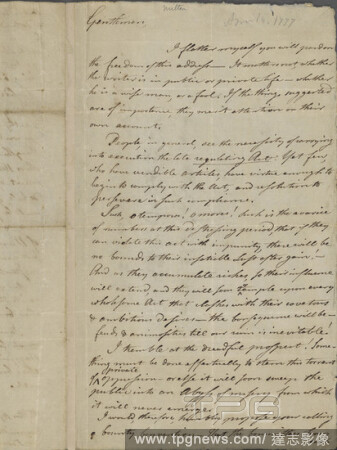 Gentlemen
1777
I flatter myself you will pardon
the freedom of this address — It matters not whether
the writer is in public or private life — whether
he is a wise man, or a fool. If the things suggested
are of importance, they merit attention on their
own account.
People, in general, see the necessity of carrying
into execution the late regulating Act: Yet few,
who have vendible articles, have virtue enough to
begin to comply with the Act, and resolution to
persevere in such compliance.
Such, O tempora, O mores! such is the avarice
of numbers at this distressing period, that if they
can violate this act with impunity, there will be
no bounds to their insatiable lust after gain; —
And as they accumulate riches, so their influence
will extend, and they will soon trample upon every
wholesome Act that clashes with their covetous
& ambitious desires — the consequence will be —
feuds & animosities till our ruin is inevitable!
I tremble at the dreadful prospect! Some-
thing must be done effectually to stem this torrent
of private oppression — or else it will soon merge the
public into an Abyss of misery from which
it will never emerge.
I would therefore humbly propose your calling
a County
www.tpgnews.com / 達志影像